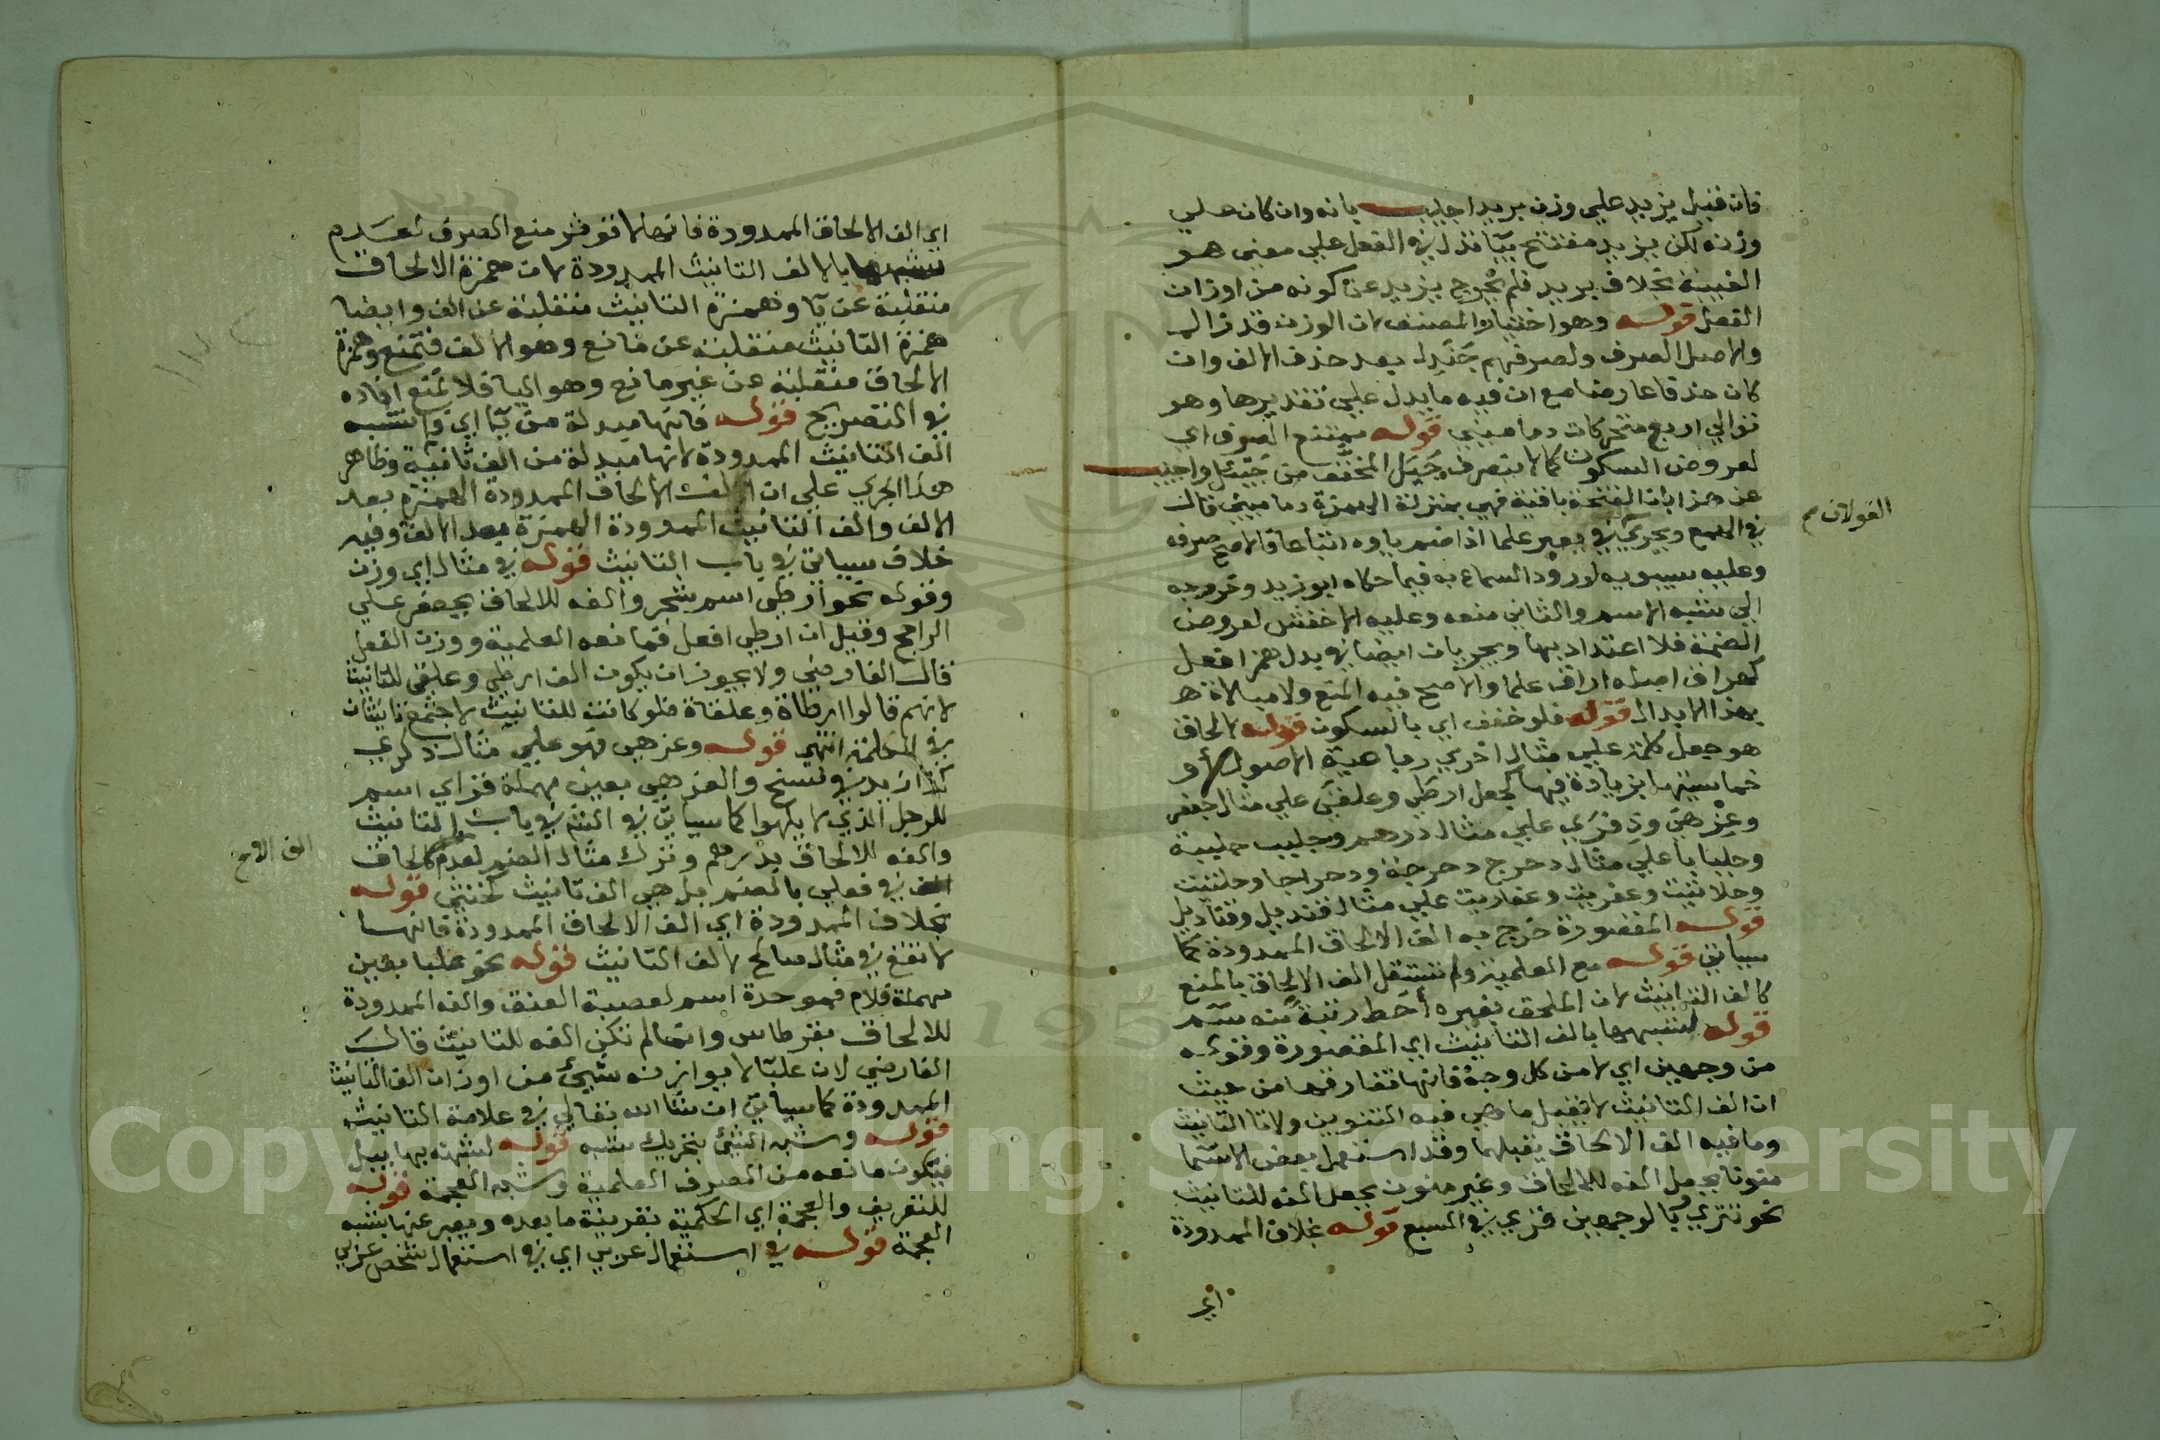 فان قيل يزيد علي وزن بريد اجيب بانه وان كان علي
وزنه لكن يزيد مفتتح بيا تدل في الفعل علي معني هو
الغيبة بخلاف بريد فلم يخرج يزيد عن كونه من اوزان
الفعل قوله وهو اختيار المصنف لان الوزن قد زال
والاصل الصرف ولصرفهم جندل بعد حذف الالف وان
كان حذفا عارضا مع ان فيه ما يدل علي تقديرها وهو
توالي اربع متحركات دماميني قوله يمتنع الصرف اي
لعروض السكون كما لا ينصرف جيل المخفف من جيئل واجيب
عن هذا بان الفتحة باقية فهي بمنزلة الهمزة دماميني قال
في الهمع ويجري في يعفر علما اذا ضم ياوه اتباعا والاصح صرفه
القولان صح
وعليه سيبويه لورود السماع به فيما حكاه ابو زيد وخروجه
الي شبه الاسم والثاني منعه وعليه الاخفش لعروض
الضمة فلا اعتداد بها ويجريان ايضا في بدل همز افعل
كهراق اصله اراق علما والاصح فيه المنع ولا مبالاة
بهذا الابدال قوله فلو خفف اي بالسكون قوله لالحاق
هو جعل كلمة علي مثال اخري رباعية الاصول او
خماسيتها بزيادة فيها كجعل ارطي وعلقي علي مثال جعفر
وعزهي وذفري علي مثال درهم وجلبب جلببة
وجلبابا علي مثال دحرج دحرجة ودحراجا وحلتيت
وحلاتيت وعفريت وعفاريت علي مثال قنديل وقناديل
قوله المقصورة خرج به الف الالحاق الممدودة كما
سياتي قوله مع العلمية ولم تستقل الف الالحاق بالمنع
كالف التانيث لان الملحق بغيره احط رتبة منه سم
قوله لشبهها بالف التانيث اي المقصورة وقوله
من وجهين اي لا من كل وجه فانها تفارقها من حيث
ان الف التانيث لا تقبل ما هي فيه التنوين ولا تا التانيث
وما فيه الف الالحاق يقبلهما وقد استعمل بعض الاسما
منونا بجعل الفه للالحاق وغير منون بجعل الفه للتانيث
نحو تتري وبالوجهين قري في السبع قوله بخلاف الممدودة
اي
اي الف الالحاق الممدودة فانها لا توثر منع الصرف لعدم
شبهها بالالف التانيث الممدودة لان همزة الالحاق
منقلبة عن يا وهمزة التانيث منقلبة عن الف وايضا
همزة التانيث منقلبة عن مانع وهو الالف فتمنع وهمزة
الالحاق منقلبة عن غير مانع وهو اليا فلا تمنع افاده
في التصريح قوله فانها مبدلة من يا اي وانشبه
الف التانيث الممدودة لانها مبدلة من الف ثانية وظاهر
هذا الجري علي ان الف الالحاق الممدودة الهمزة بعد
الالف والف التانيث الممدودة الهمزة بعد الالف وفيه
خلاف سياتي في باب التانيث قوله في مثال اي وزن
وقوله نحو ارطي اسم شجر والفه للالحاق بجعفر علي
الراجح وقيل ان ارطي افعل فمانعه العلمية ووزن الفعل
قال الفارضي ولا يجوز ان يكون الف ارطي وعلقي للتانيث
لانهم قالوا ارطاة وعلقاة فلو كانت للتانيث لاجتمع تانيثان
في الكلمة انتهي قوله وعزهي فهو علي مثال ذكري
كذا زيد في نسخ والعزهي بعين مهملة فزاي اسم
للرجل الذي لا يلهوا كما سياتي في الشم في باب التانيث
والفه للالحاق بدرهم وترك مثال الضم لعدم الحاق
الف الالحاق صح
الف في فعلي بالضم بل هي الف تانيث كخنثي قوله
بخلاف الممدودة اي الف الالحاق الممدودة فانها
لا تقع في مثال صالح لالف التانيث قوله نحو علبا بعين
مهملة فلام فموحدة اسم لعصبة العنق والفه الممدودة
للالحاق بقرطاس وانما لم تكن الفه للتانيث قال
الفارضي لان علبا لا يوازنه شيء من اوزان الف التانيث
الممدودة كما سياتي ان شا الله تعالي في علامة التانيث
قوله وشبه الشئ بتحريك شبه قوله لشبهه بهابيل
فيكون مانعه من الصرف العلمية وشبه العجمة قوله
للتعريف والعجمة اي الحكمية بقرينة ما بعده ويعبر عنها بشبه
العجمة قوله في استعمال عربي اي في استعمال شخص عربي